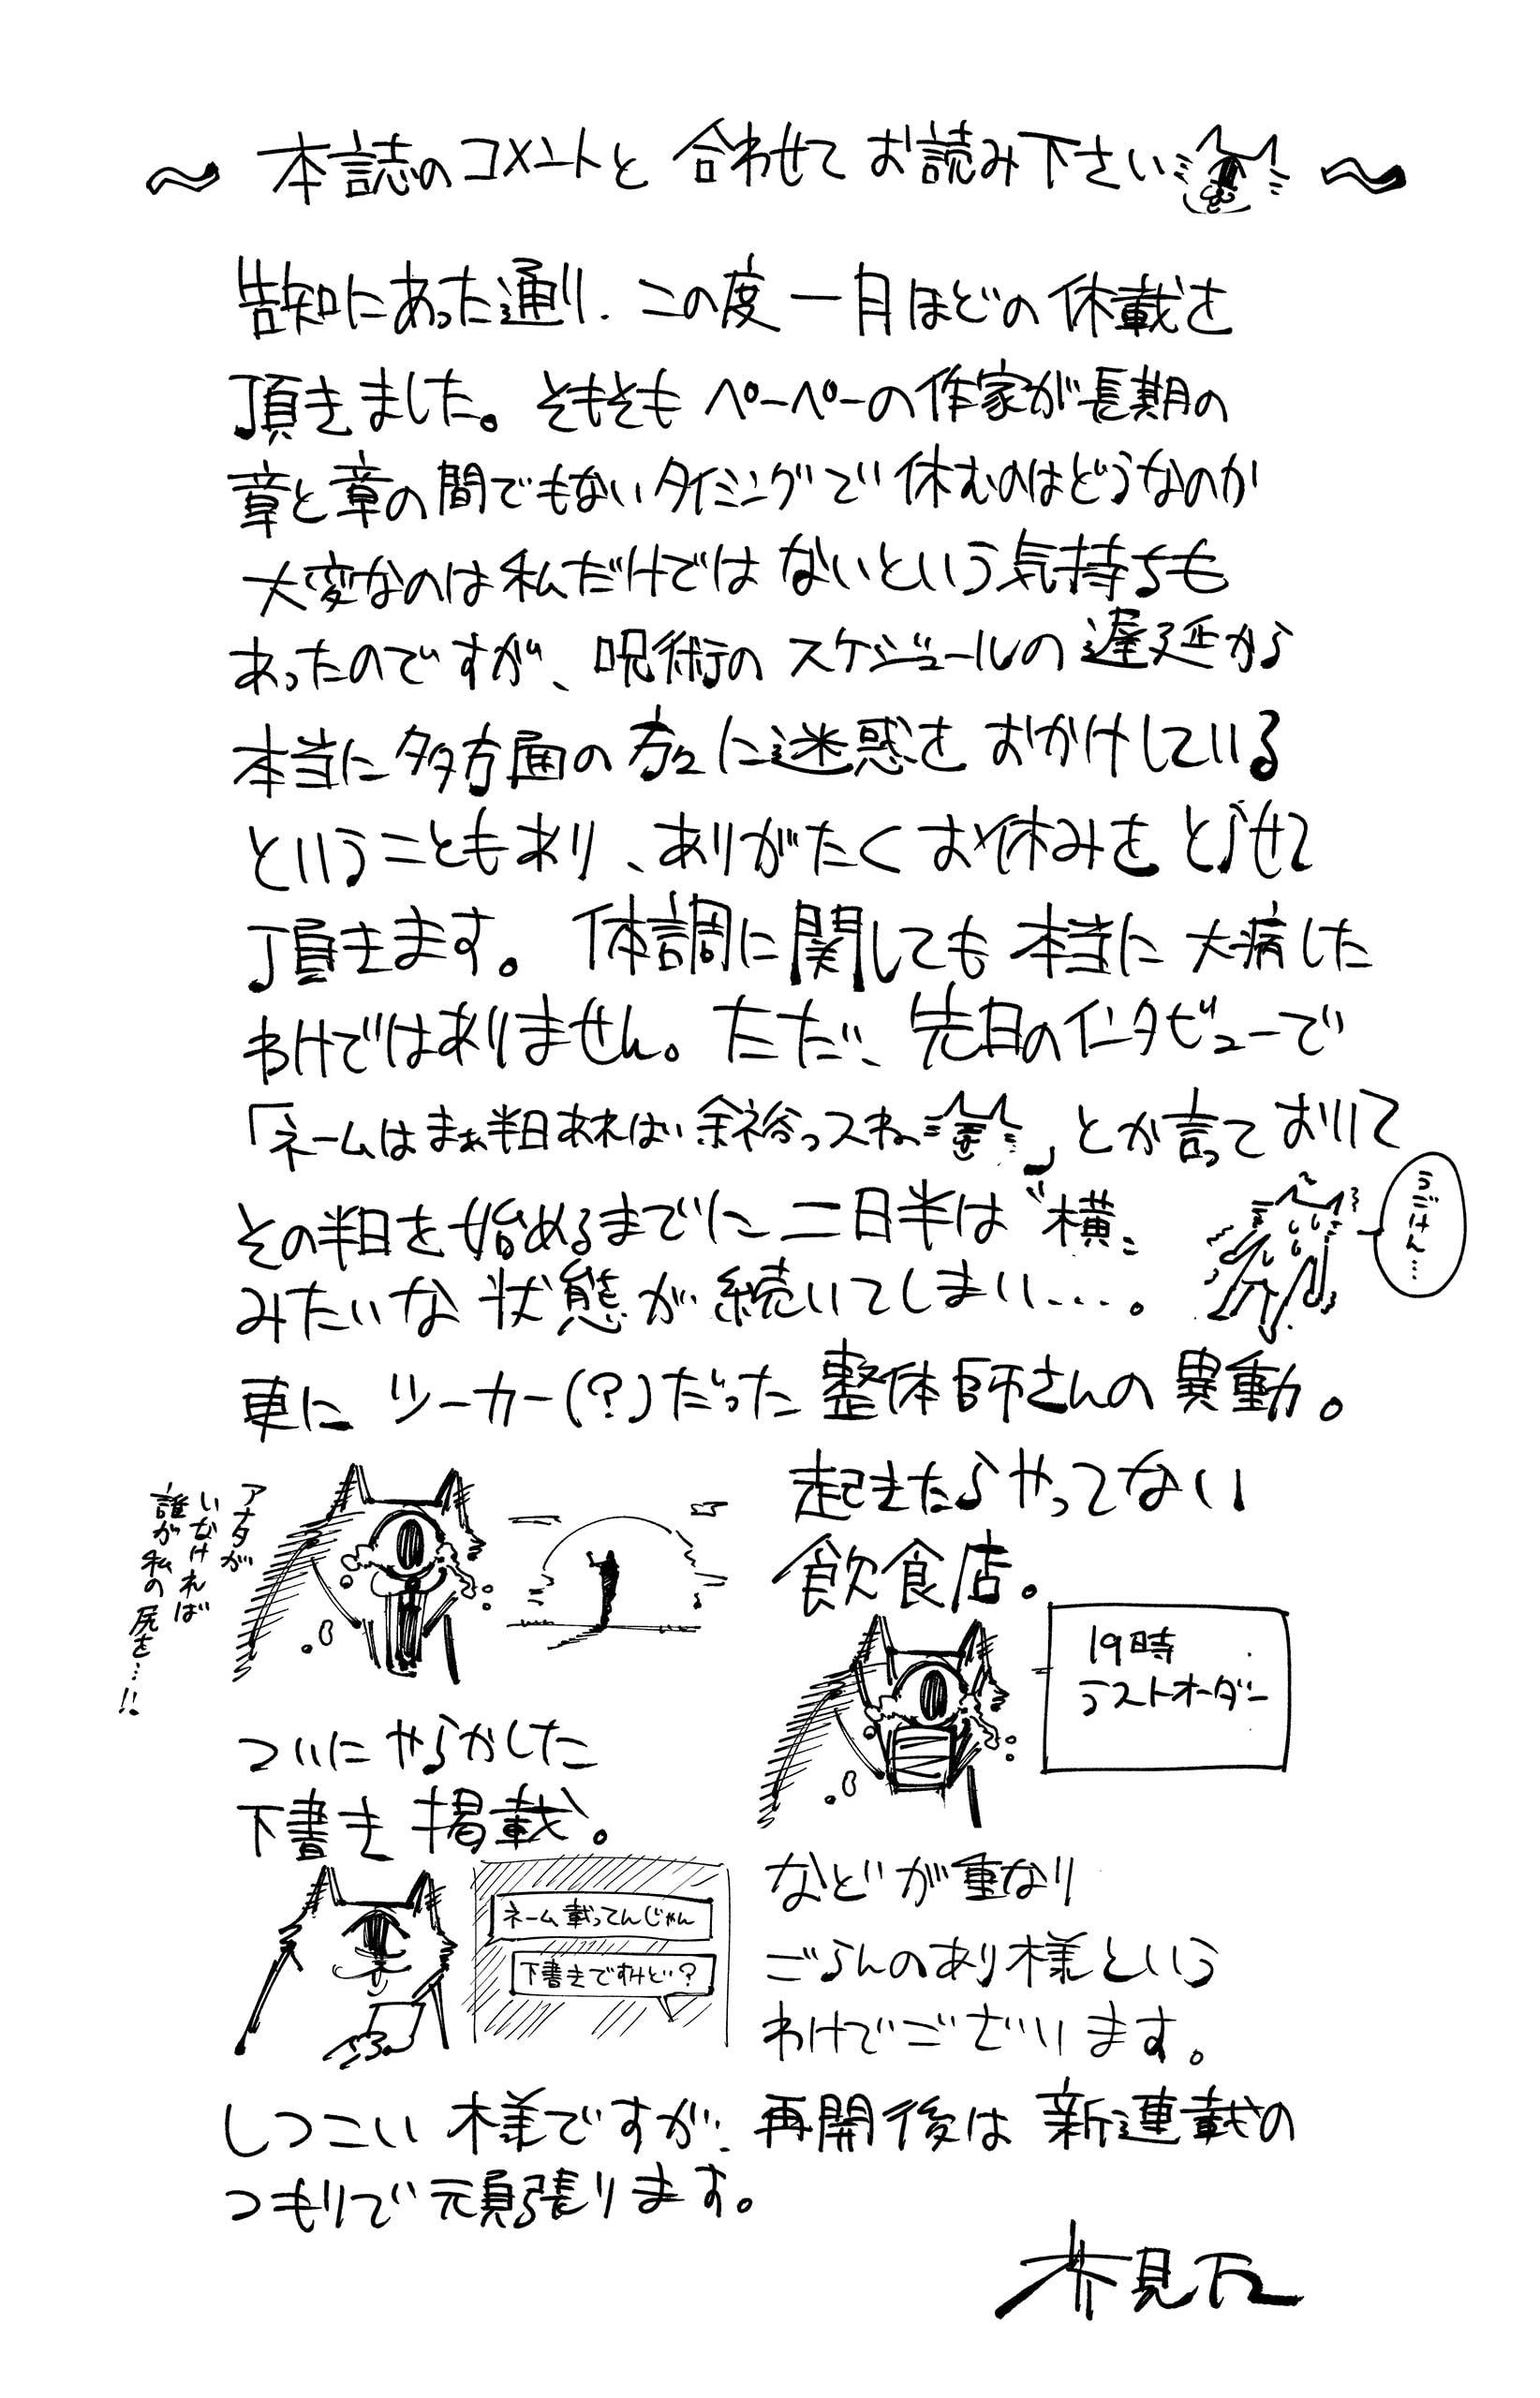 ～ 本誌のコメントと 合わせて お読み下さい ～
告知にあった通り、この度 一月ほどの 休載を
頂きました。そもそも ペーペーの作家が長期の
章と章の間でもないタイミングで 休むのはどうなのか
大変なのは私だけでは ないという気持ちも
あったのですが、呪術の スケジュールの 遅延から
本当に 多方面の 方々に迷惑を おかけしている
ということもあり、ありがたくお休みを とらせて
頂きます。体調に関しても 本当に 大病した
わけではありません。ただ、先日のインタビューで
「ネームはまぁ半日あれば 余裕っスね」とか言って おいて
その半日を始めるまでに 二日半は〝横〟
うごけん…
みたいな 状態が続いてしまい…。
更に ツーカー(?)だった 整体師さんの 異動。
アナタが
いなければ
誰が私の尻を…!!
起きたらやってない
飲食店。
19時
ラストオーダー
ついに やらかした
下書き 掲載。
ネーム載ってんじゃん
下書きですけど?
などが重なり
ごらんのあり様という
わけでございます。
しつこい 様ですが、再開後は 新連載の
つもりで頑張ります。
芥見下々